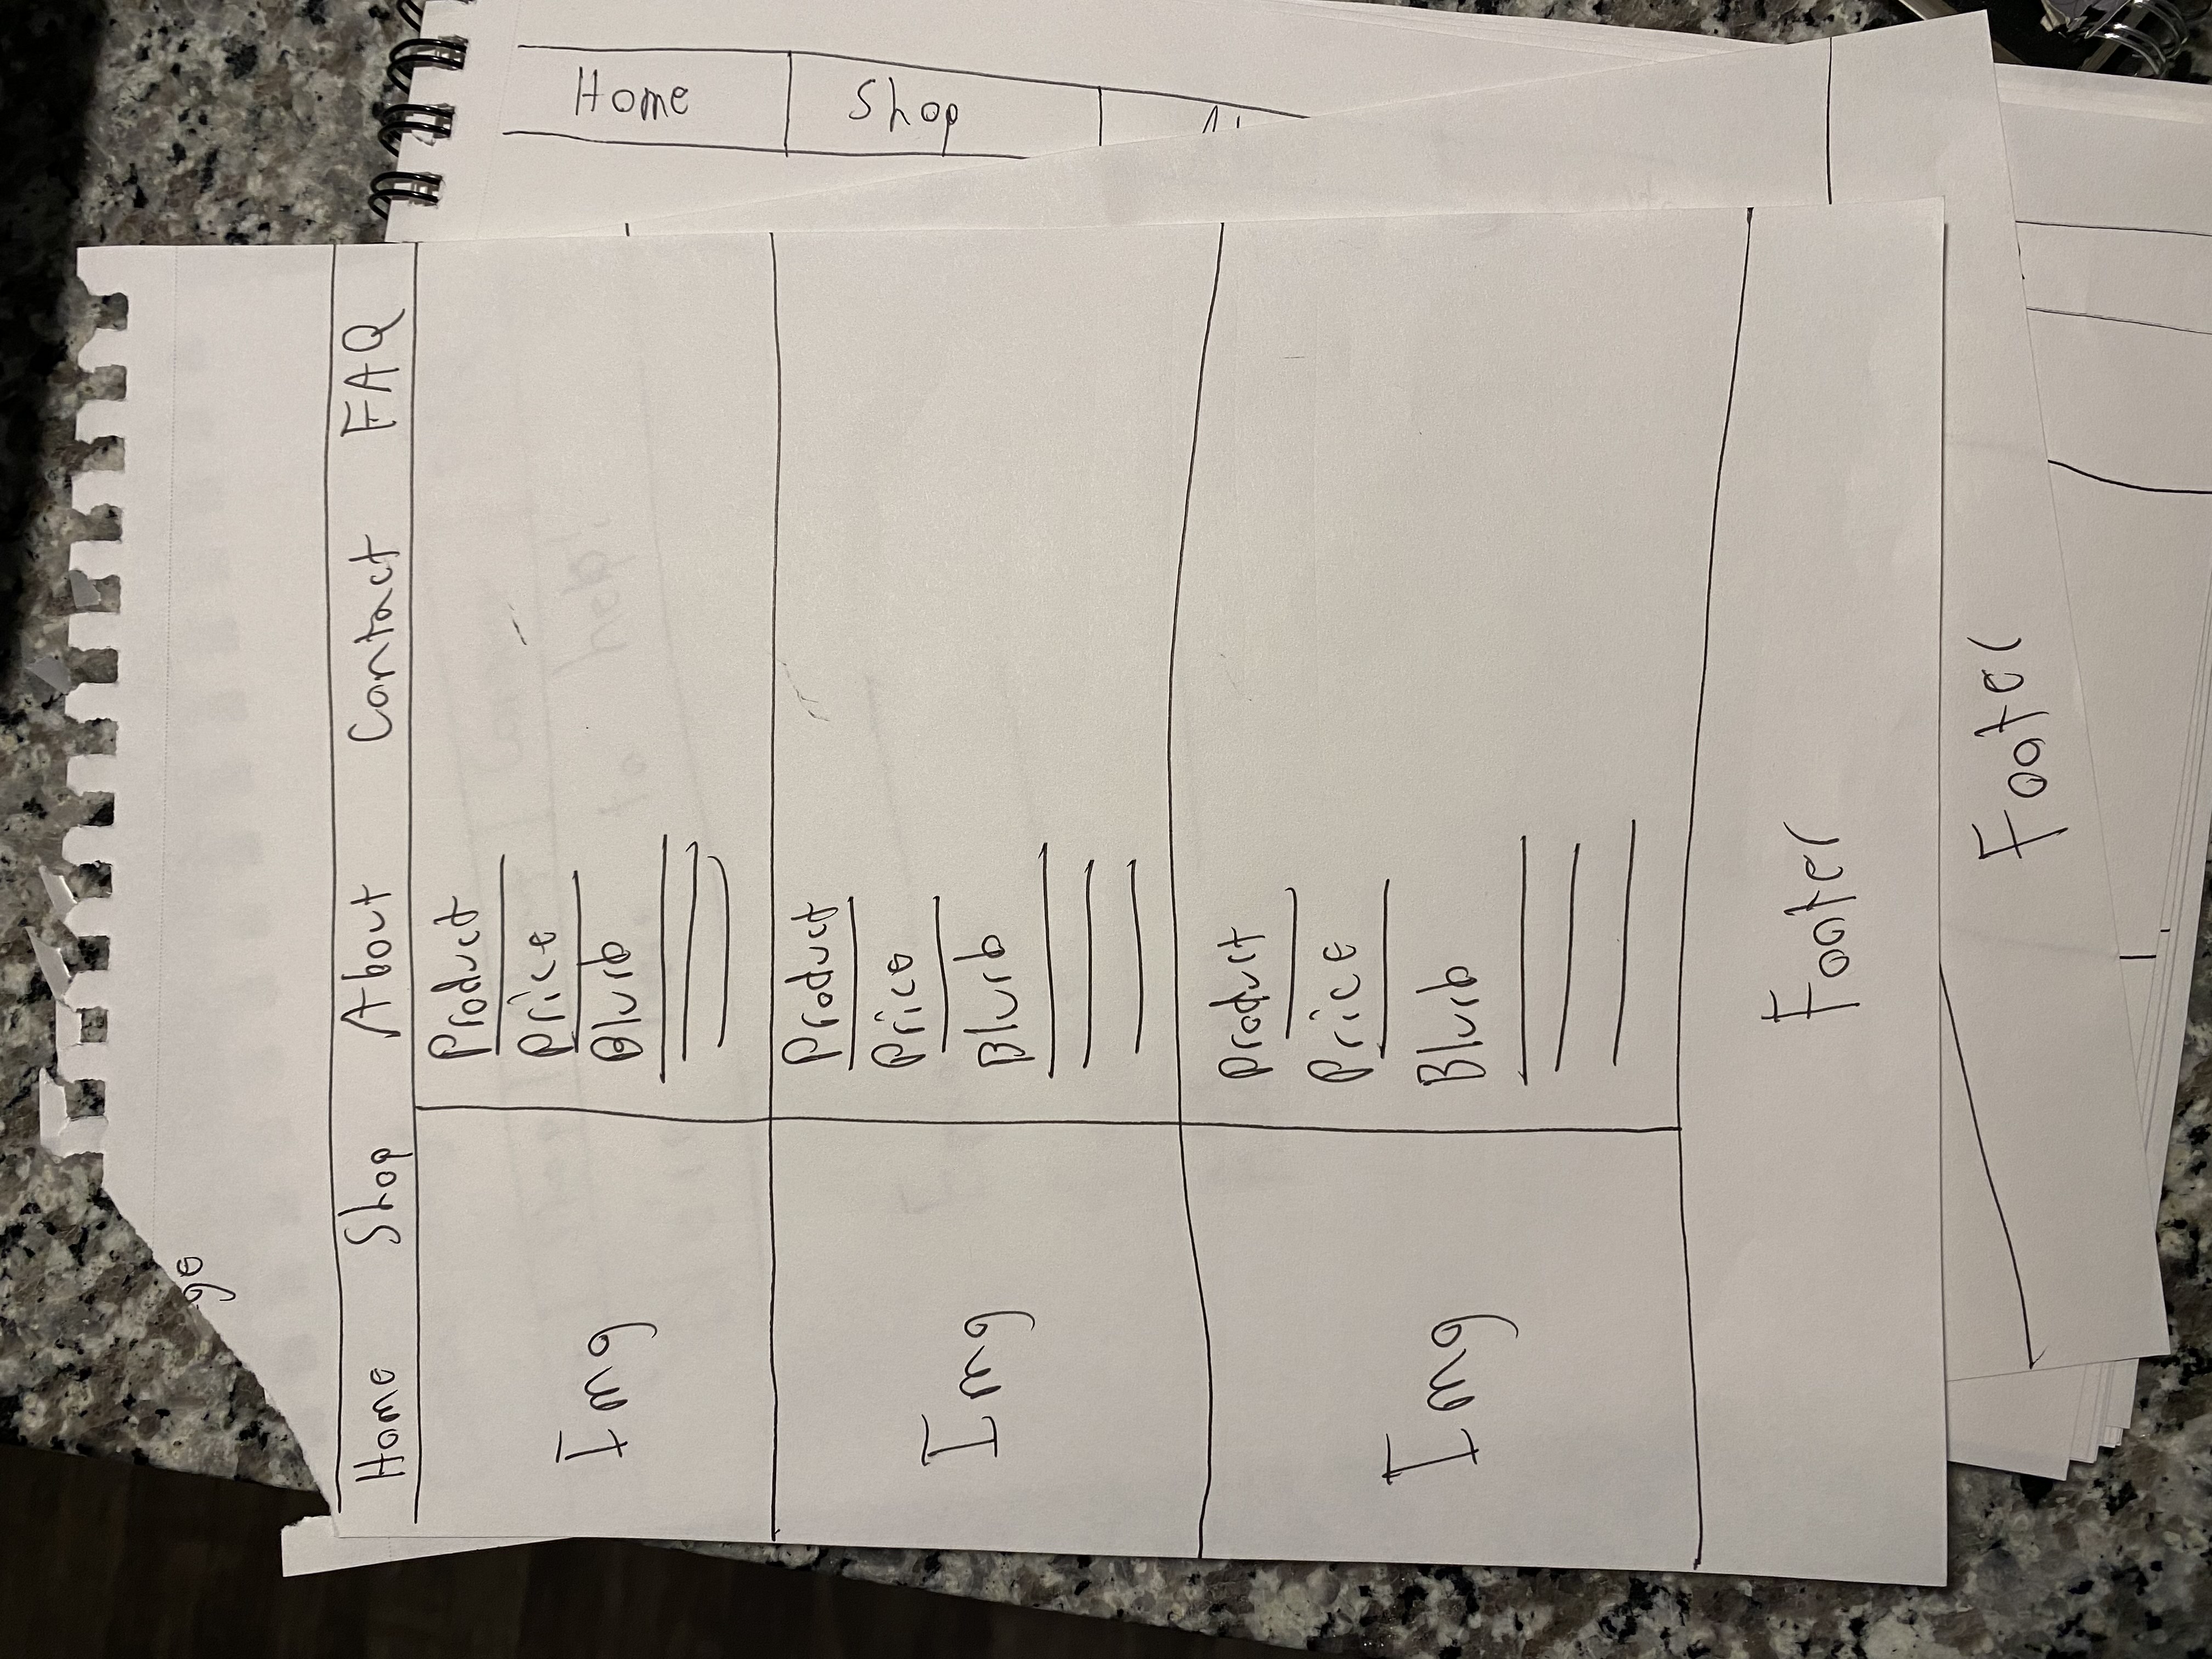 ge
Home Shop About Contact FAQ
Img
Product
Price
Blurb
Img
Product
Price
Blurb
Img
Product
Price
Blurb
Footer
Footer
Home
Shop
help!
to